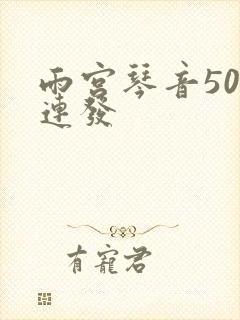 雨宫琴音50
連發
有寵君